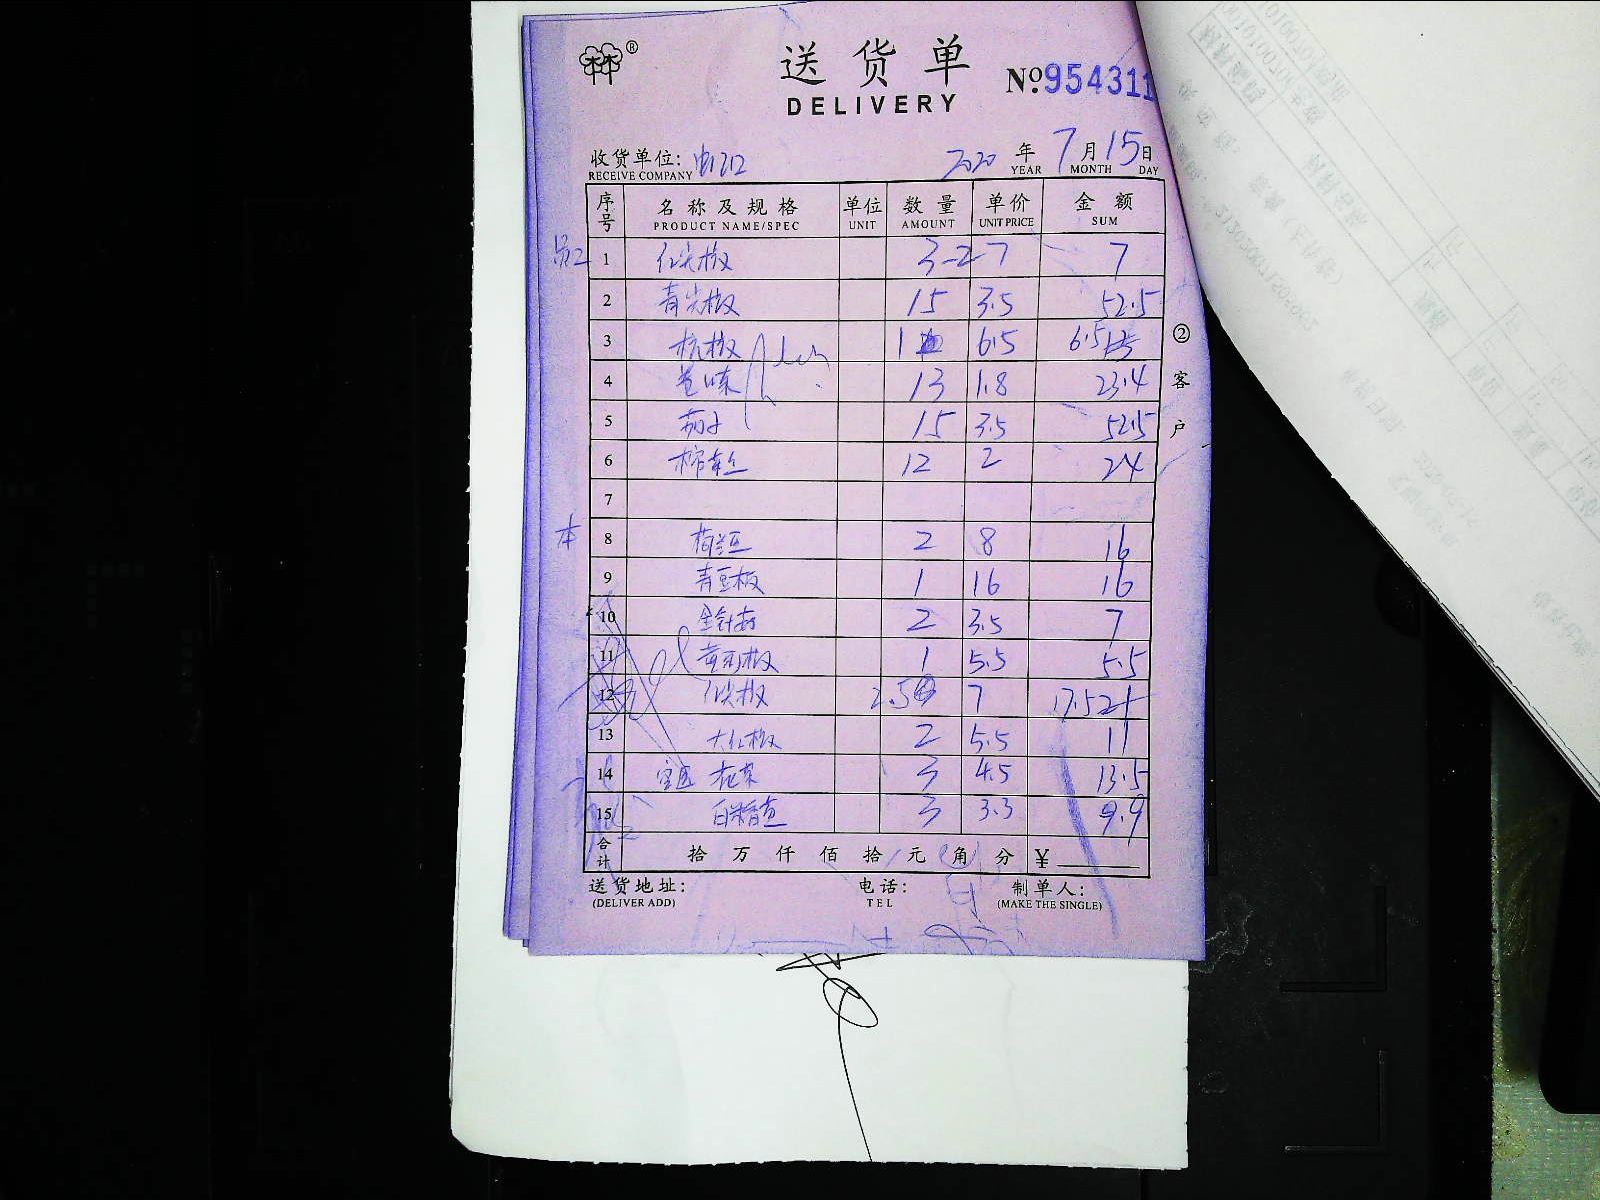 送货单
DELIVERY
№954311
收货单位:
2020 年 7 月 15 日
RECEIVE COMPANY YEAR MONTH DAY
序号 名称及规格 单位 数量 单价 金额
PRODUCT NAME/SPEC UNIT AMOUNT UNIT PRICE SUM
员工 1 红尖椒 3-2 7 7
2 青尖椒 15 3.5 52.5
3 杭椒 1 6.5 6.5
4 13 1.8 23.4
5 茄子 15 3.5 52.5
6 12 2 24
7
本 8 荷兰豆 2 8 16
9 青豆板 1 16 16
10 金针菇 2 3.5 7
11 黄彩椒 1 5.5 5.5
12 红尖椒 2.5 7 17.5
13 大红椒 2 5.5 11
14 花菜 3 4.5 13.5
15 3 3.3 9.9
合计 拾 万 仟 佰 拾 元 角 分 ¥
送货地址: 电话: 制单人:
(DELIVER ADD) TEL (MAKE THE SINGLE)
②客户